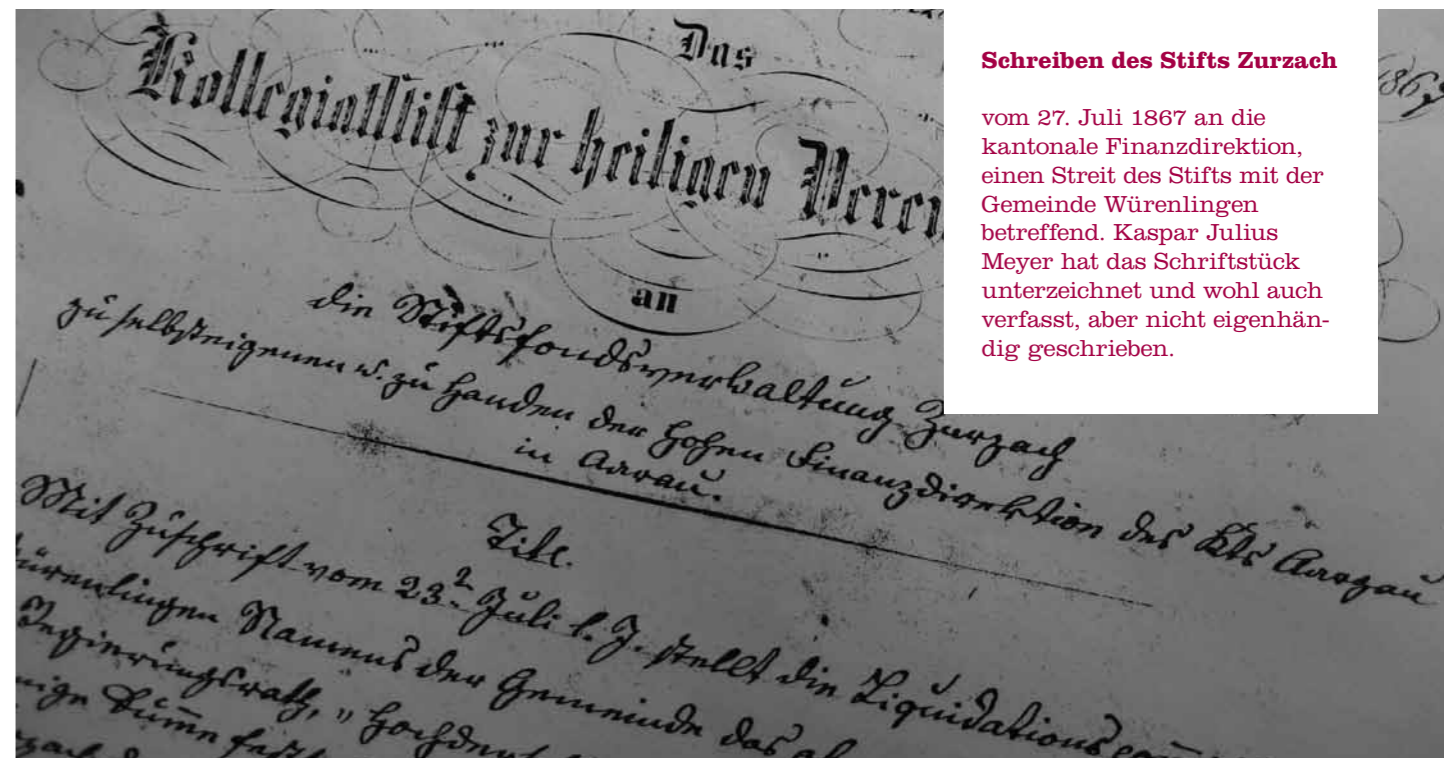 Das
Kollegiatstift zur heiligen Veren
1867
an
die Stiftsfondsverwaltung Zurzach
zu selbsteigenen u. zu Handen der hohen Finanzdirektion des Kts Aargau
in Aarau.
Titl.
Mit Zuschrift vom 23. Juli l. J. stellt die Liquidationscom
ürenlingen Namens der Gemeinde das
Regierungsrath, "Hochder
nige Summe fest
Schreiben des Stifts Zurzach
vom 27. Juli 1867 an die
kantonale Finanzdirektion,
einen Streit des Stifts mit der
Gemeinde Würenlingen
betreffend. Kaspar Julius
Meyer hat das Schriftstück
unterzeichnet und wohl auch
verfasst, aber nicht eigenhän-
dig geschrieben.